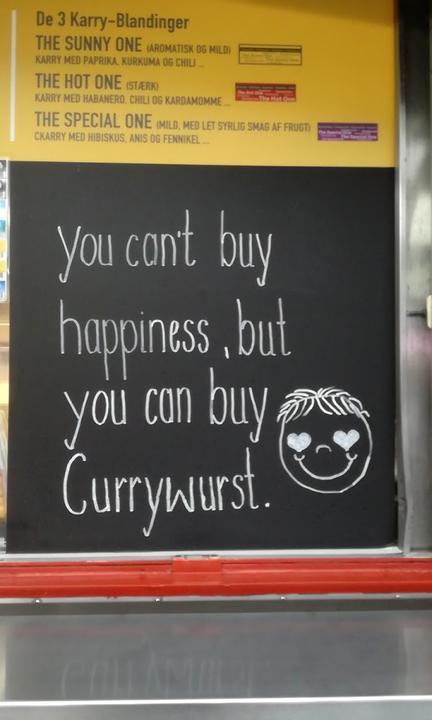 De 3 Karry-Blandinger
THE SUNNY ONE (AROMATISK OG MILD)
KARRY MED PAPRIKA, KURKUMA OG CHILI ...
THE HOT ONE (STÆRK)
KARRY MED HABANERO, CHILI OG KARDAMOMME ...
The Hot One
THE SPECIAL ONE (MILD, MED LET SYRLIG SMAG AF FRUGT)
CKARRY MED HIBISKUS, ANIS OG FENNIKEL ...
you can't buy
happiness, but
you can buy
Currywurst.